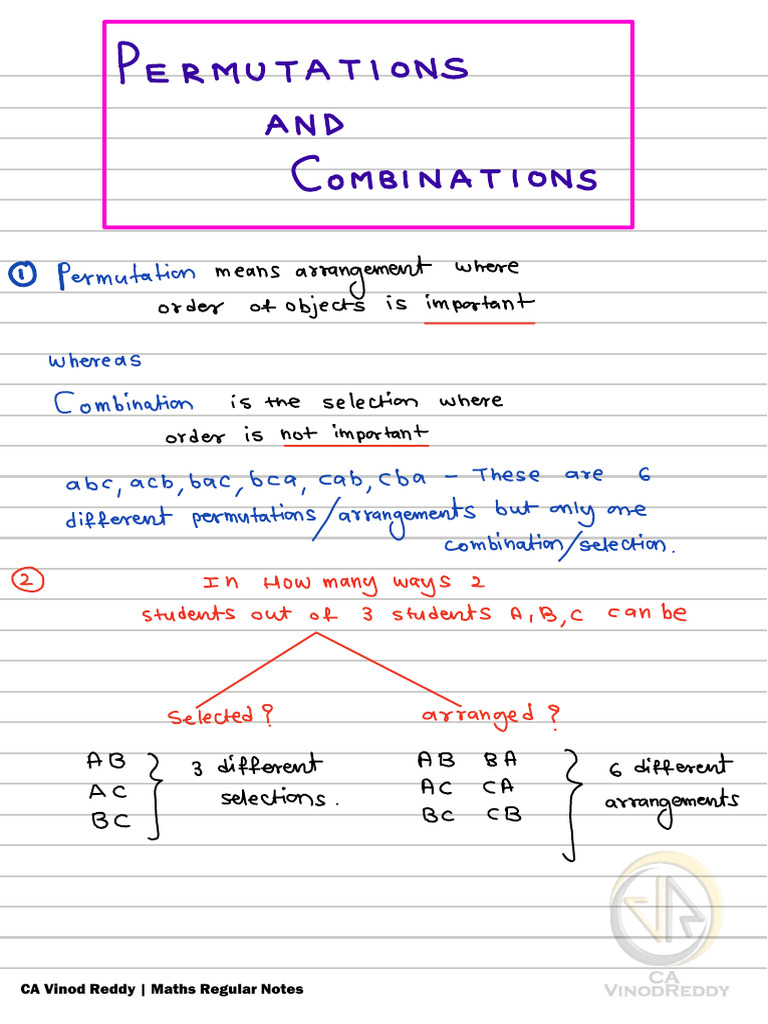 PERMUTATIONS
AND
COMBINATIONS
① Permutation means arrangement where
order of objects is important
whereas
Combination is the selection where
order is not important
abc, acb, bac, bca, cab, cba – These are 6
different permutations/arrangements but only one
combination/selection.
② In How many ways 2
students out of 3 students A, B, C can be
selected? arranged?
AB 3 different AB BA 6 different
AC selections. AC CA arrangements
BC BC CB
CA
VINODREDDY
CA Vinod Reddy | Maths Regular Notes